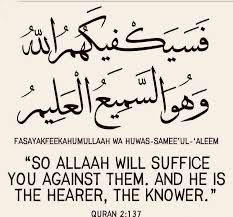 فَسَيَكْفِيكَهُمُ اللَّهُ
وَهُوَ السَّمِيعُ الْعَلِيمُ
FASAYAKFEEKAHUMULLAAH WA HUWAS-SAMEE'UL-'ALEEM
"SO ALLAAH WILL SUFFICE
YOU AGAINST THEM. AND HE IS
THE HEARER, THE KNOWER."
QURAN 2:137